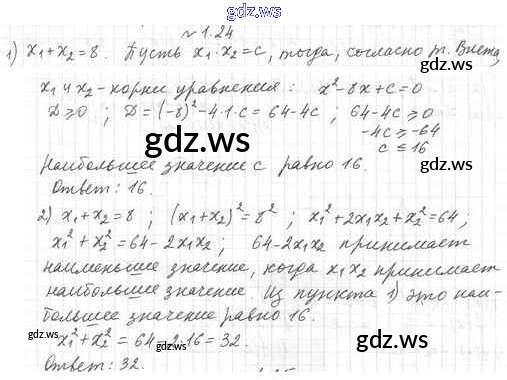 gdz.ws
№1.24
1) x₁+x₂=8. Пусть x₁·x₂=c, тогда, согласно т. Виета,
x₁ и x₂ - корни уравнения: x²-8x+c=0
D≥0 ; D=(-8)²-4·1·c=64-4c ; 64-4c≥0
gdz.ws
-4c≥-64
gdz.ws
c≤16
Наибольшее значение c равно 16.
Ответ: 16.
gdz.ws
2) x₁+x₂=8 ; (x₁+x₂)²=8² ; x₁²+2x₁x₂+x₂²=64;
x₁²+x₂²=64-2x₁x₂ ; 64-2x₁x₂ принимает
наименьшее значение, когда x₁x₂ принимает
наибольшее значение. Из пункта 1) это наи-
большее значение равно 16.
gdz.ws
x₁²+x₂²=64-2·16=32.
gdz.ws
gdz.ws
Ответ: 32.